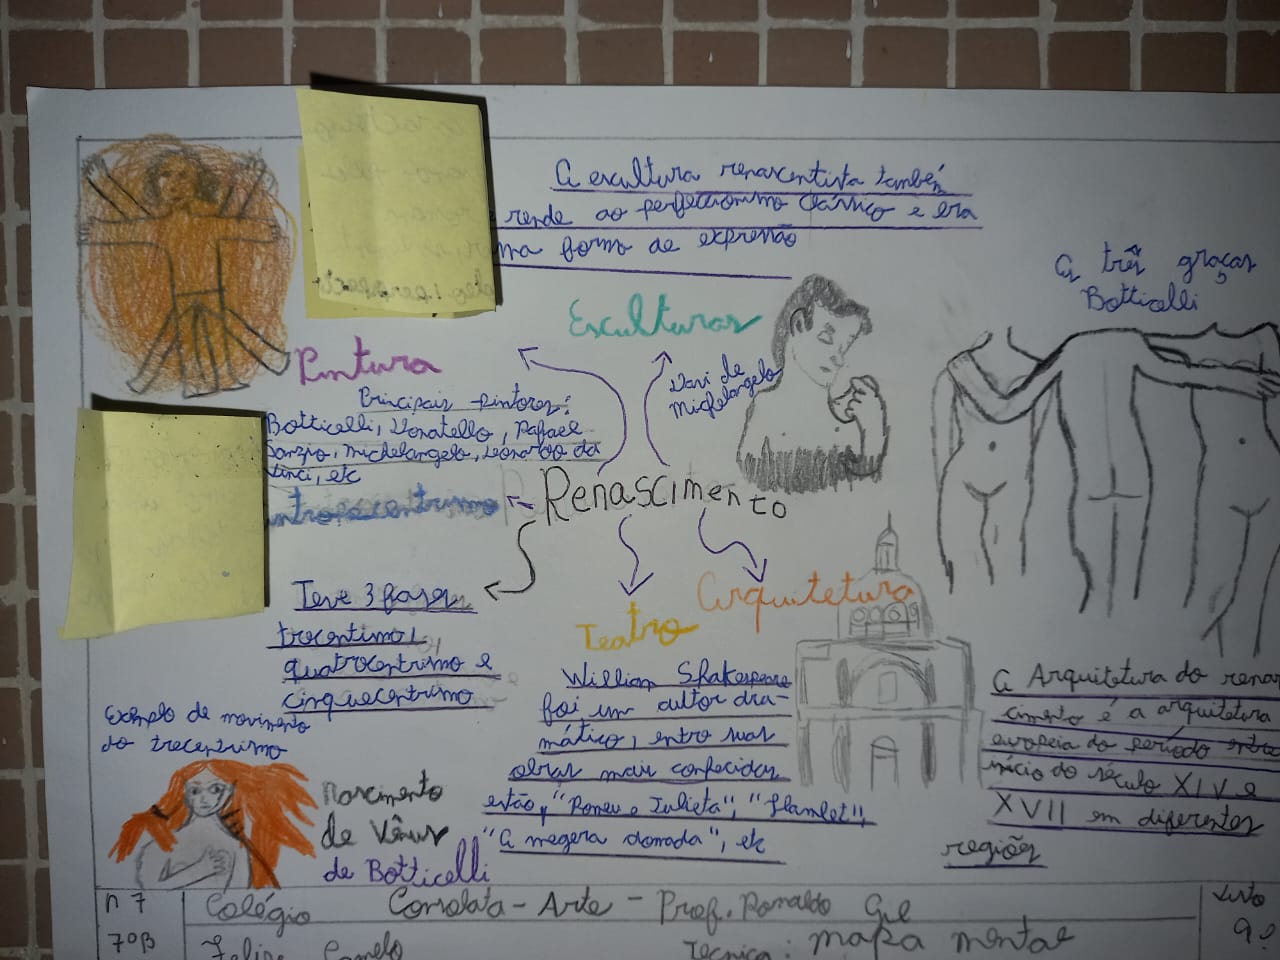 A escultura renascentista também
rende ao perfeccionismo clássico e era
ma forma de expressão
As três graças
Botticelli
Esculturas
Pintura
Davi de
Michelangelo
Principais pintores:
Botticelli, Donatello, Rafael
Sanzio, Michelangelo, Leonardo da
Vinci, etc
ntropocentrismo
Renascimento
Teve 3 fases
trecentismo,
quatrocentrismo e
cinquecentrismo
Arquitetura
Teatro
William Shakespeare
foi um autor dra-
mático, entre suas
obras mais conhecidas
estão, "Romeu e Julieta", "Hamlet",
"A megera domada", etc
A Arquitetura do renas
cimento é a arquitetura
europeia do período entre
início do século XIV e
XVII em diferentes
regiões
Exemplo de movimento
do trecentrismo
Nascimento
de Vênus
de Botticelli
n 7
Colégio Consolata - Arte - Prof. Ronaldo Gil
Visto
7º B
Felipe Camelo
Técnica: mapa mental